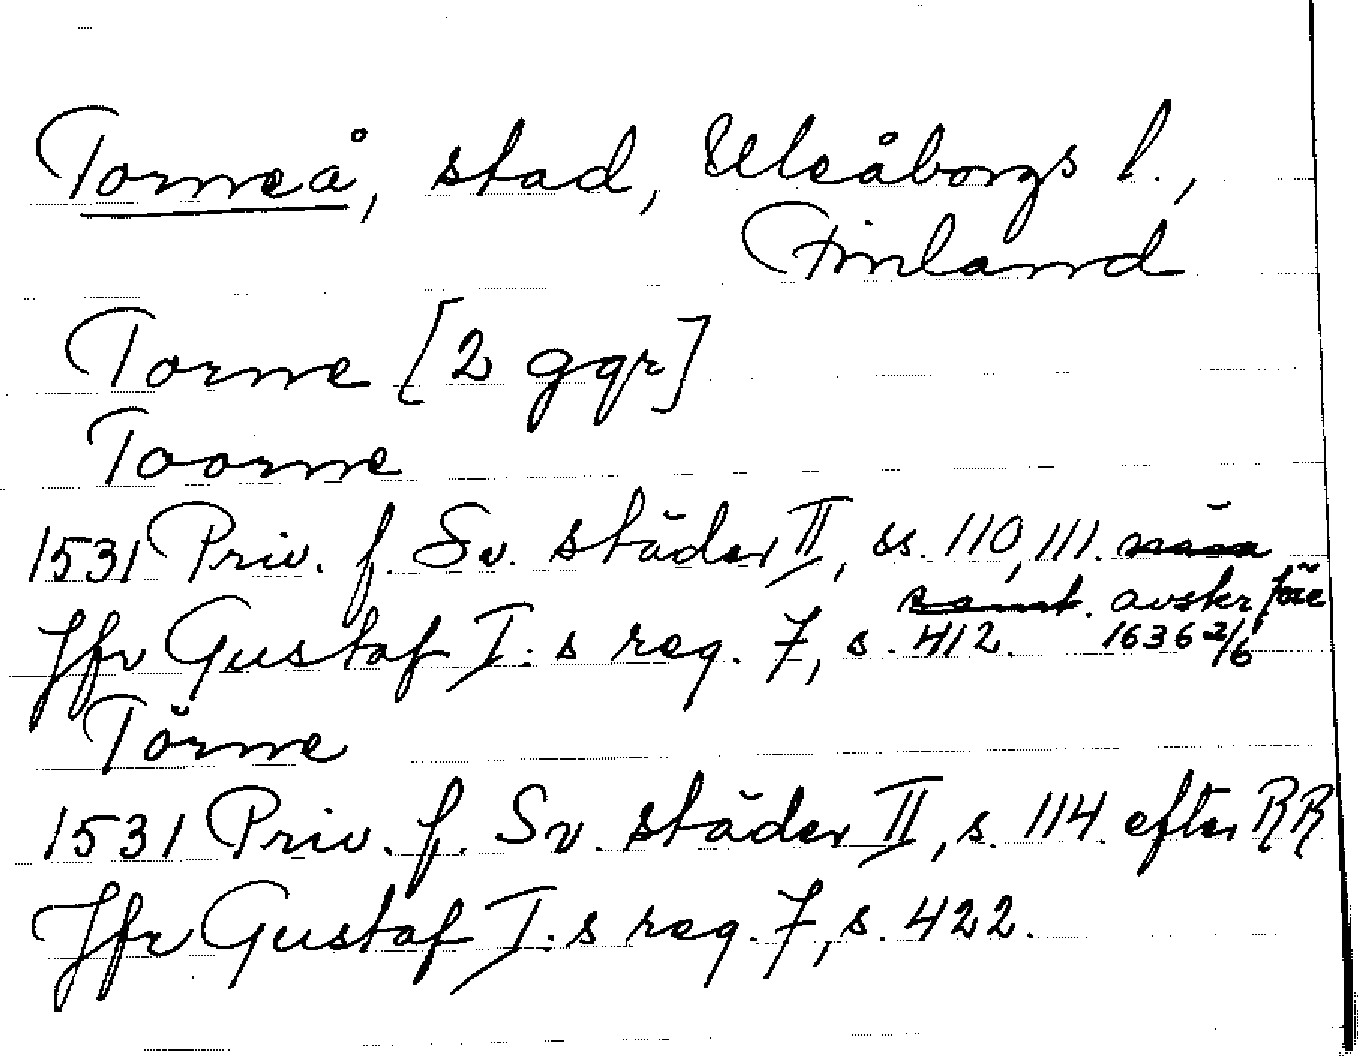 Torneå, stad, Uleåborgs l.,
Finland
Torne [2 ggr]
Toorne
1531 Priv. f. Sv. städer II, ss. 110, 111.
samt. avskr före
Jfr Gustaf I:s reg. 7, s. 412. 1636 2/6
Törne
1531 Priv. f. Sv. städer II, s. 114 efter RR
Jfr Gustaf I:s reg. 7, s. 422.